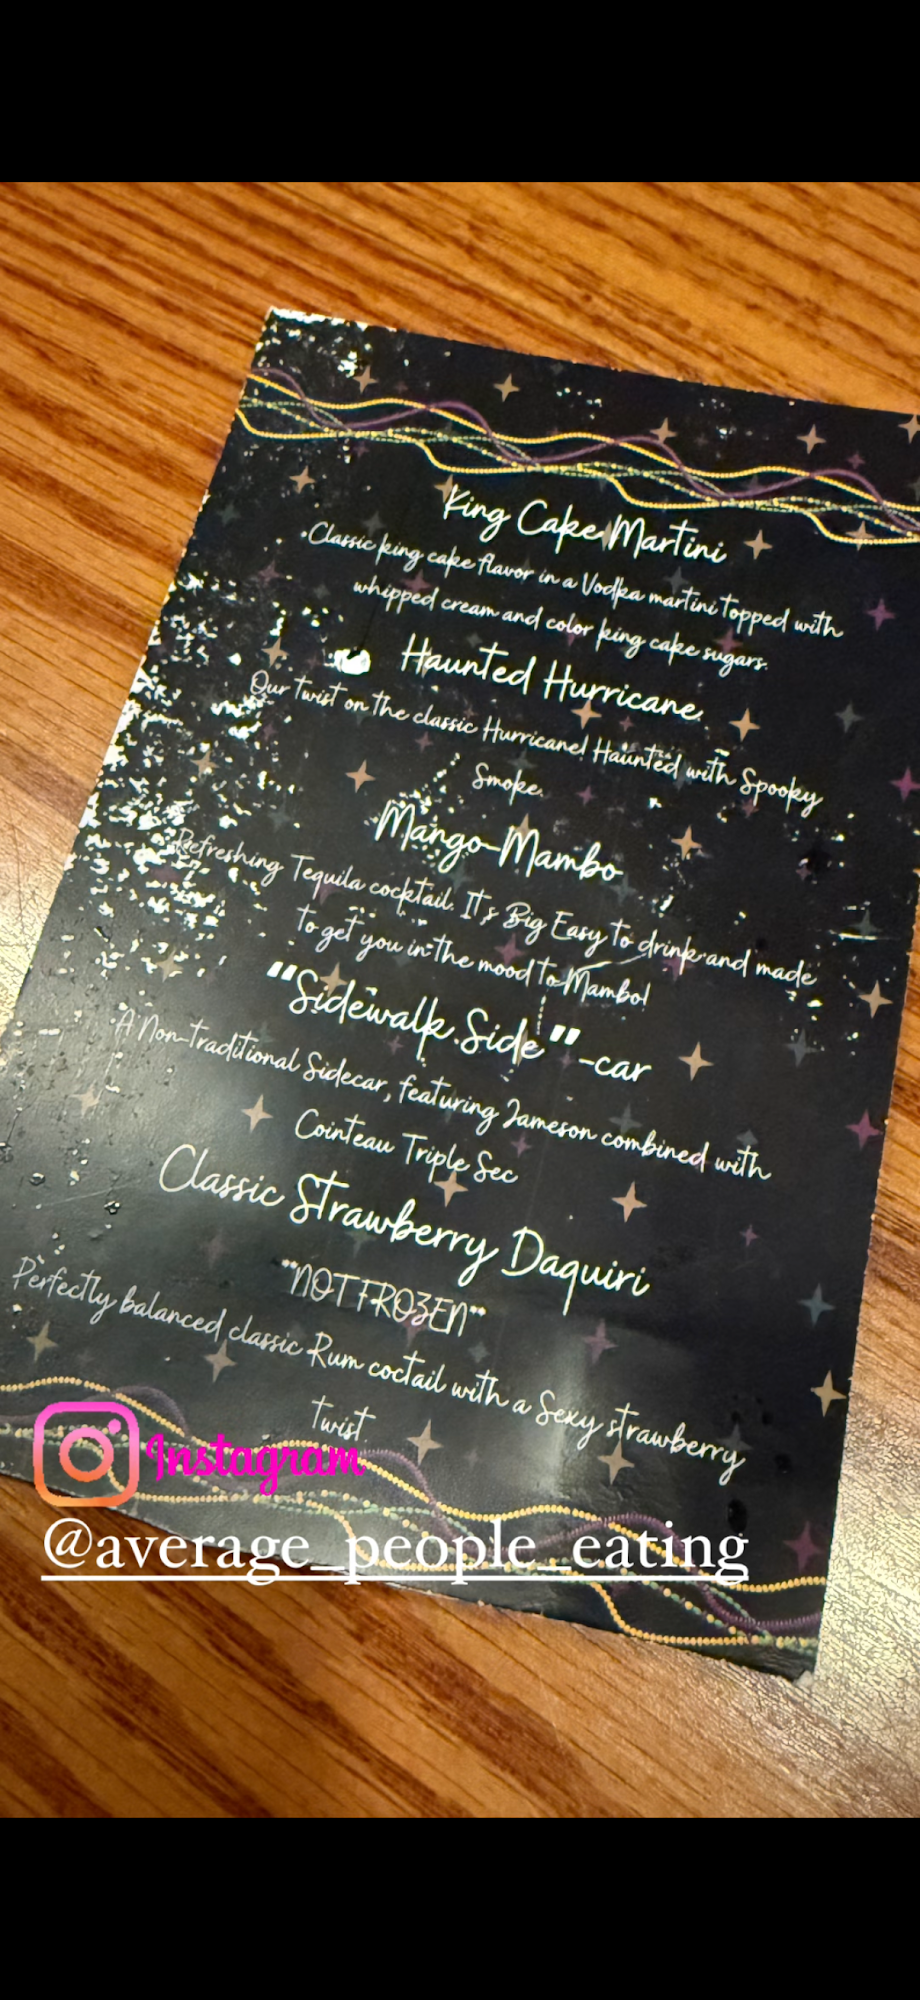 King Cake Martini
Classic king cake flavor in a Vodka martini topped with
whipped cream and color king cake sugars.
Haunted Hurricane
Our twist on the classic Hurricane! Haunted with Spooky
Smoke.
Mango-Mambo
Refreshing Tequila cocktail. It's Big Easy to drink and made
to get you in the mood to Mambo!
"Sidewalk Side"-car
A Non-Traditional Sidecar, featuring Jameson combined with
Cointeau Triple Sec
Classic Strawberry Daquiri
**NOT FROZEN**
Perfectly balanced classic Rum coctail with a Sexy strawberry
twist.
Instagram
@average_people_eating